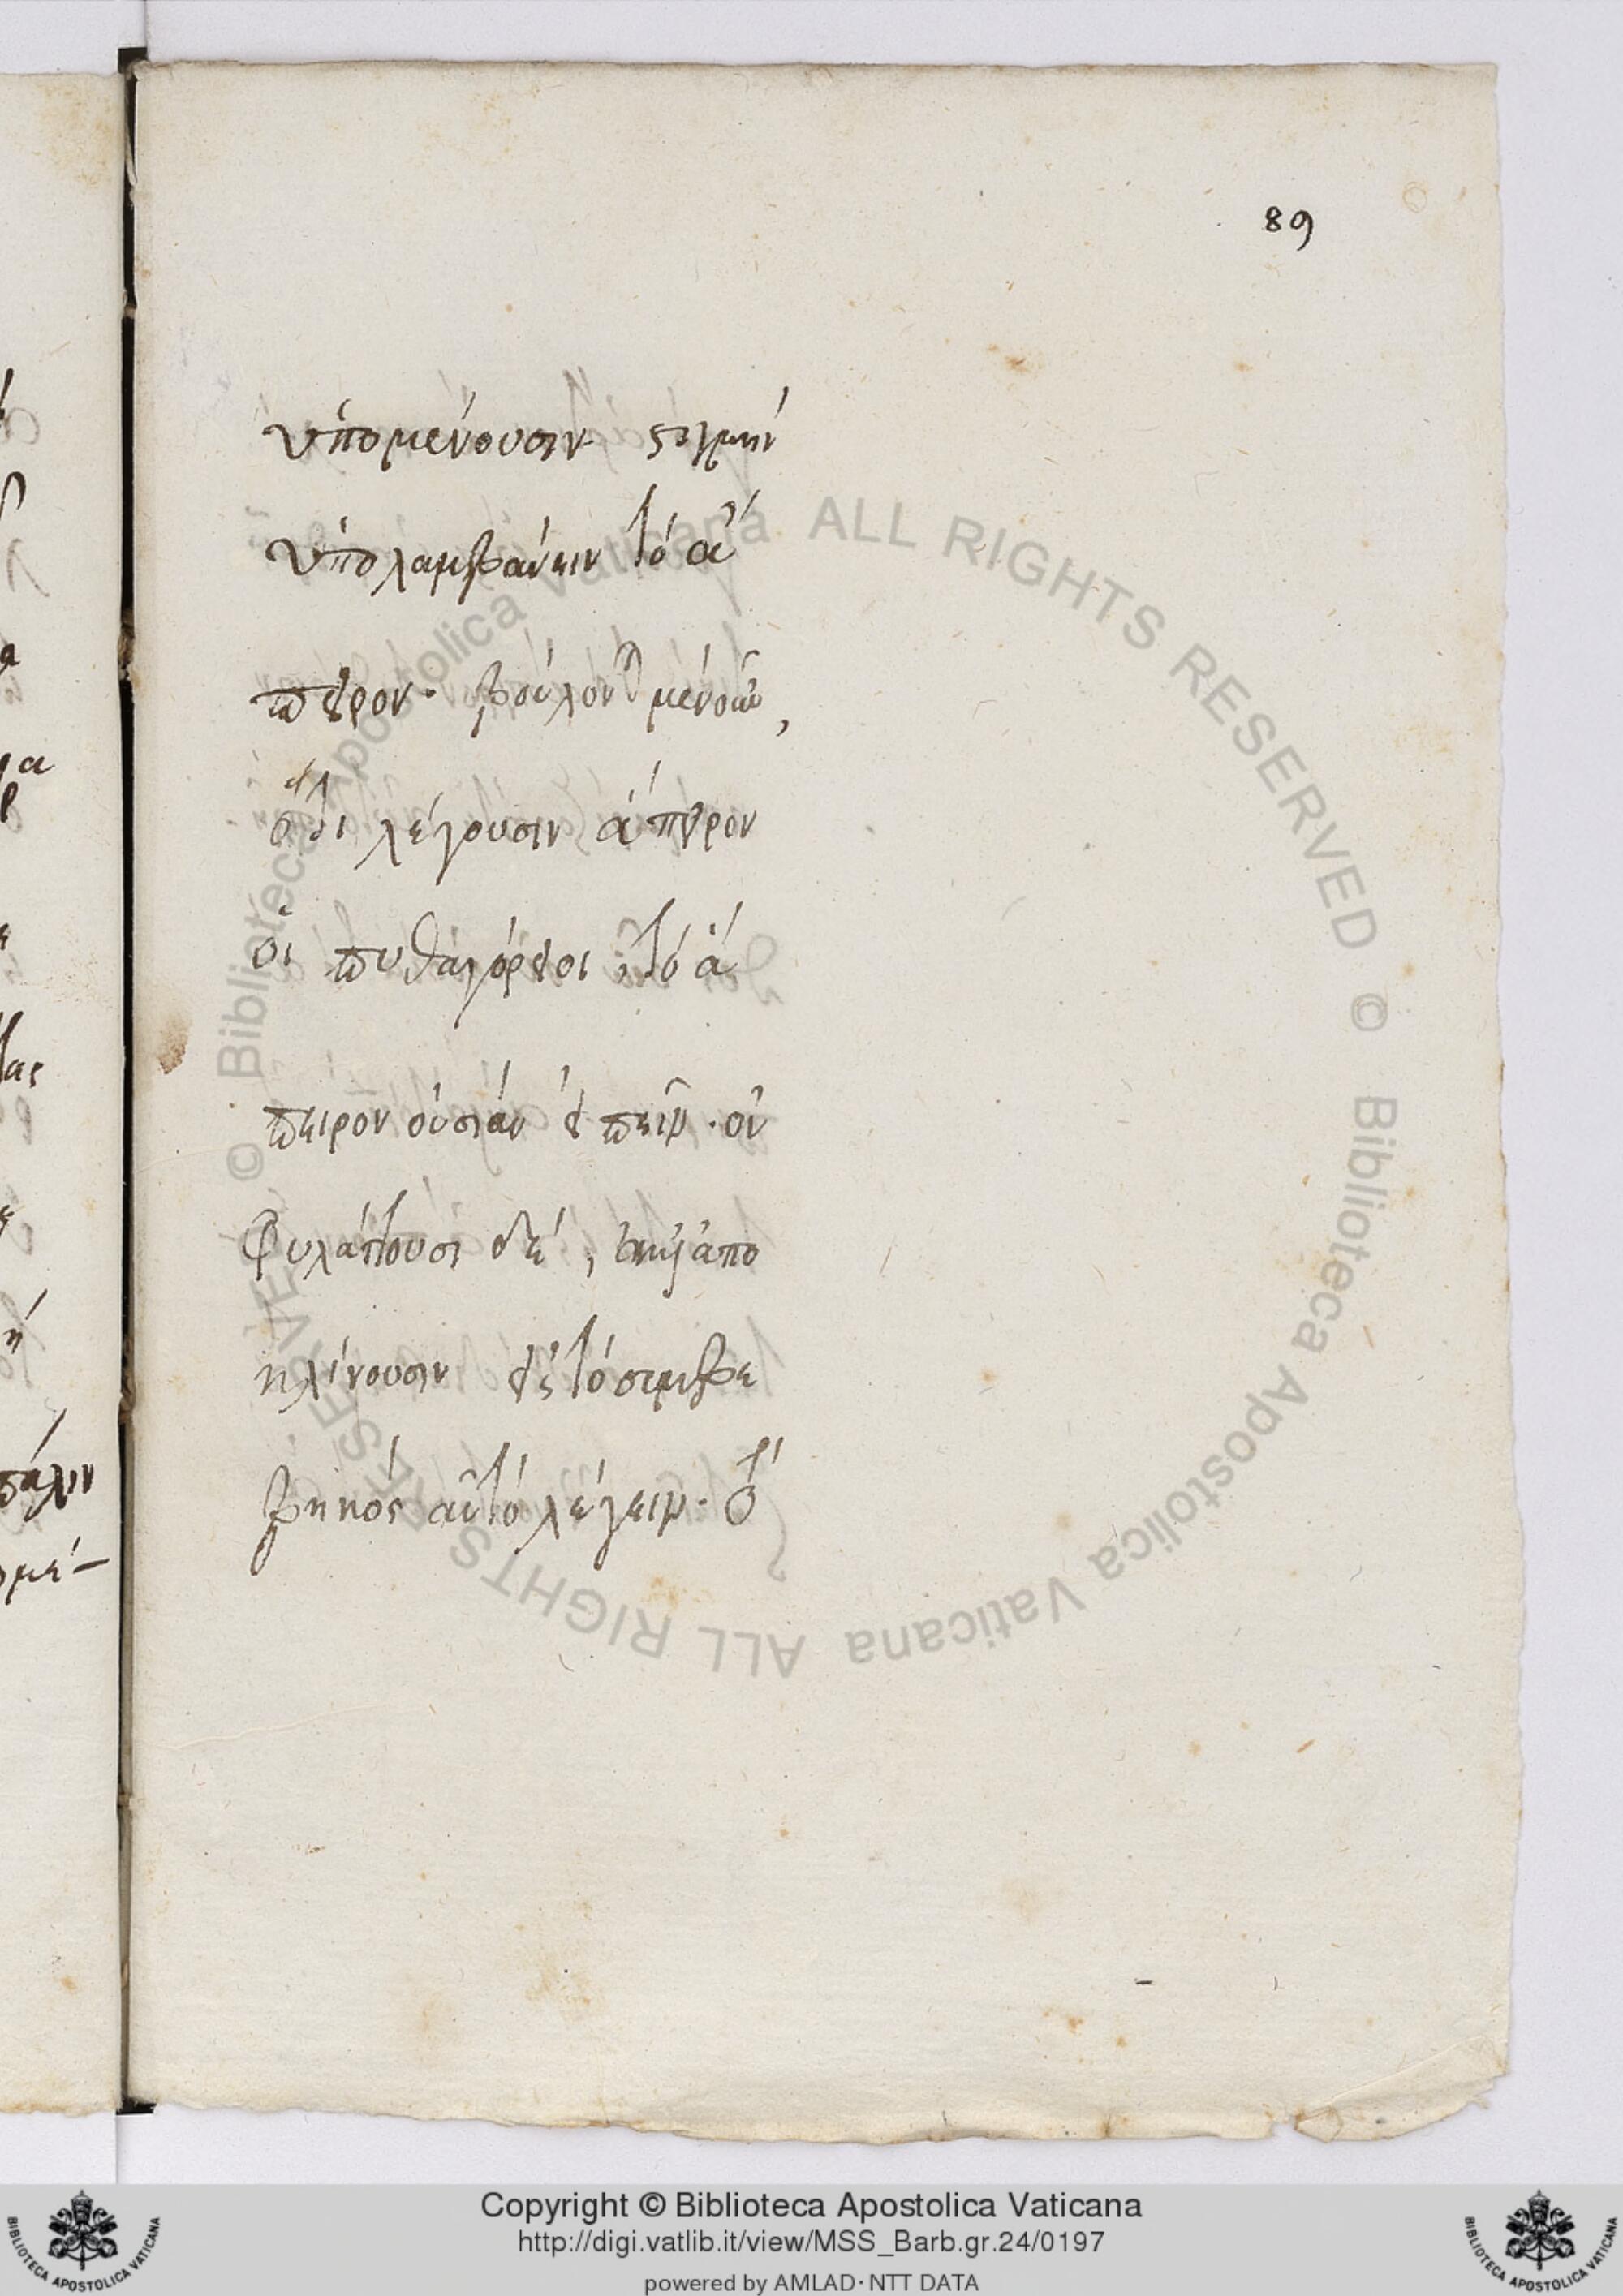 89
ὑπομένουσιν
ὑπολαμβάνειν τὸ ἄ
πειρον· βούλονται μὲν οὖν,
ὅτι λέγουσιν ἄπειρον
οἱ πυθαγόρειοι, τὸ ἄ
πειρον οὐσίαν εἰπεῖν· οὐ
φυλάττουσι δέ, ἀπο
κλίνουσιν εἰς τὸ συμβε
βηκὸς αὐτὸ λέγειν·
© Biblioteca Apostolica Vaticana ALL RIGHTS RESERVED © Biblioteca Apostolica Vaticana ALL RIGHTS RESERVED
Copyright © Biblioteca Apostolica Vaticana
http://digi.vatlib.it/view/MSS_Barb.gr.24/0197
powered by AMLAD·NTT DATA
BIBLIOTECA APOSTOLICA VATICANA
BIBLIOTECA APOSTOLICA VATICANA